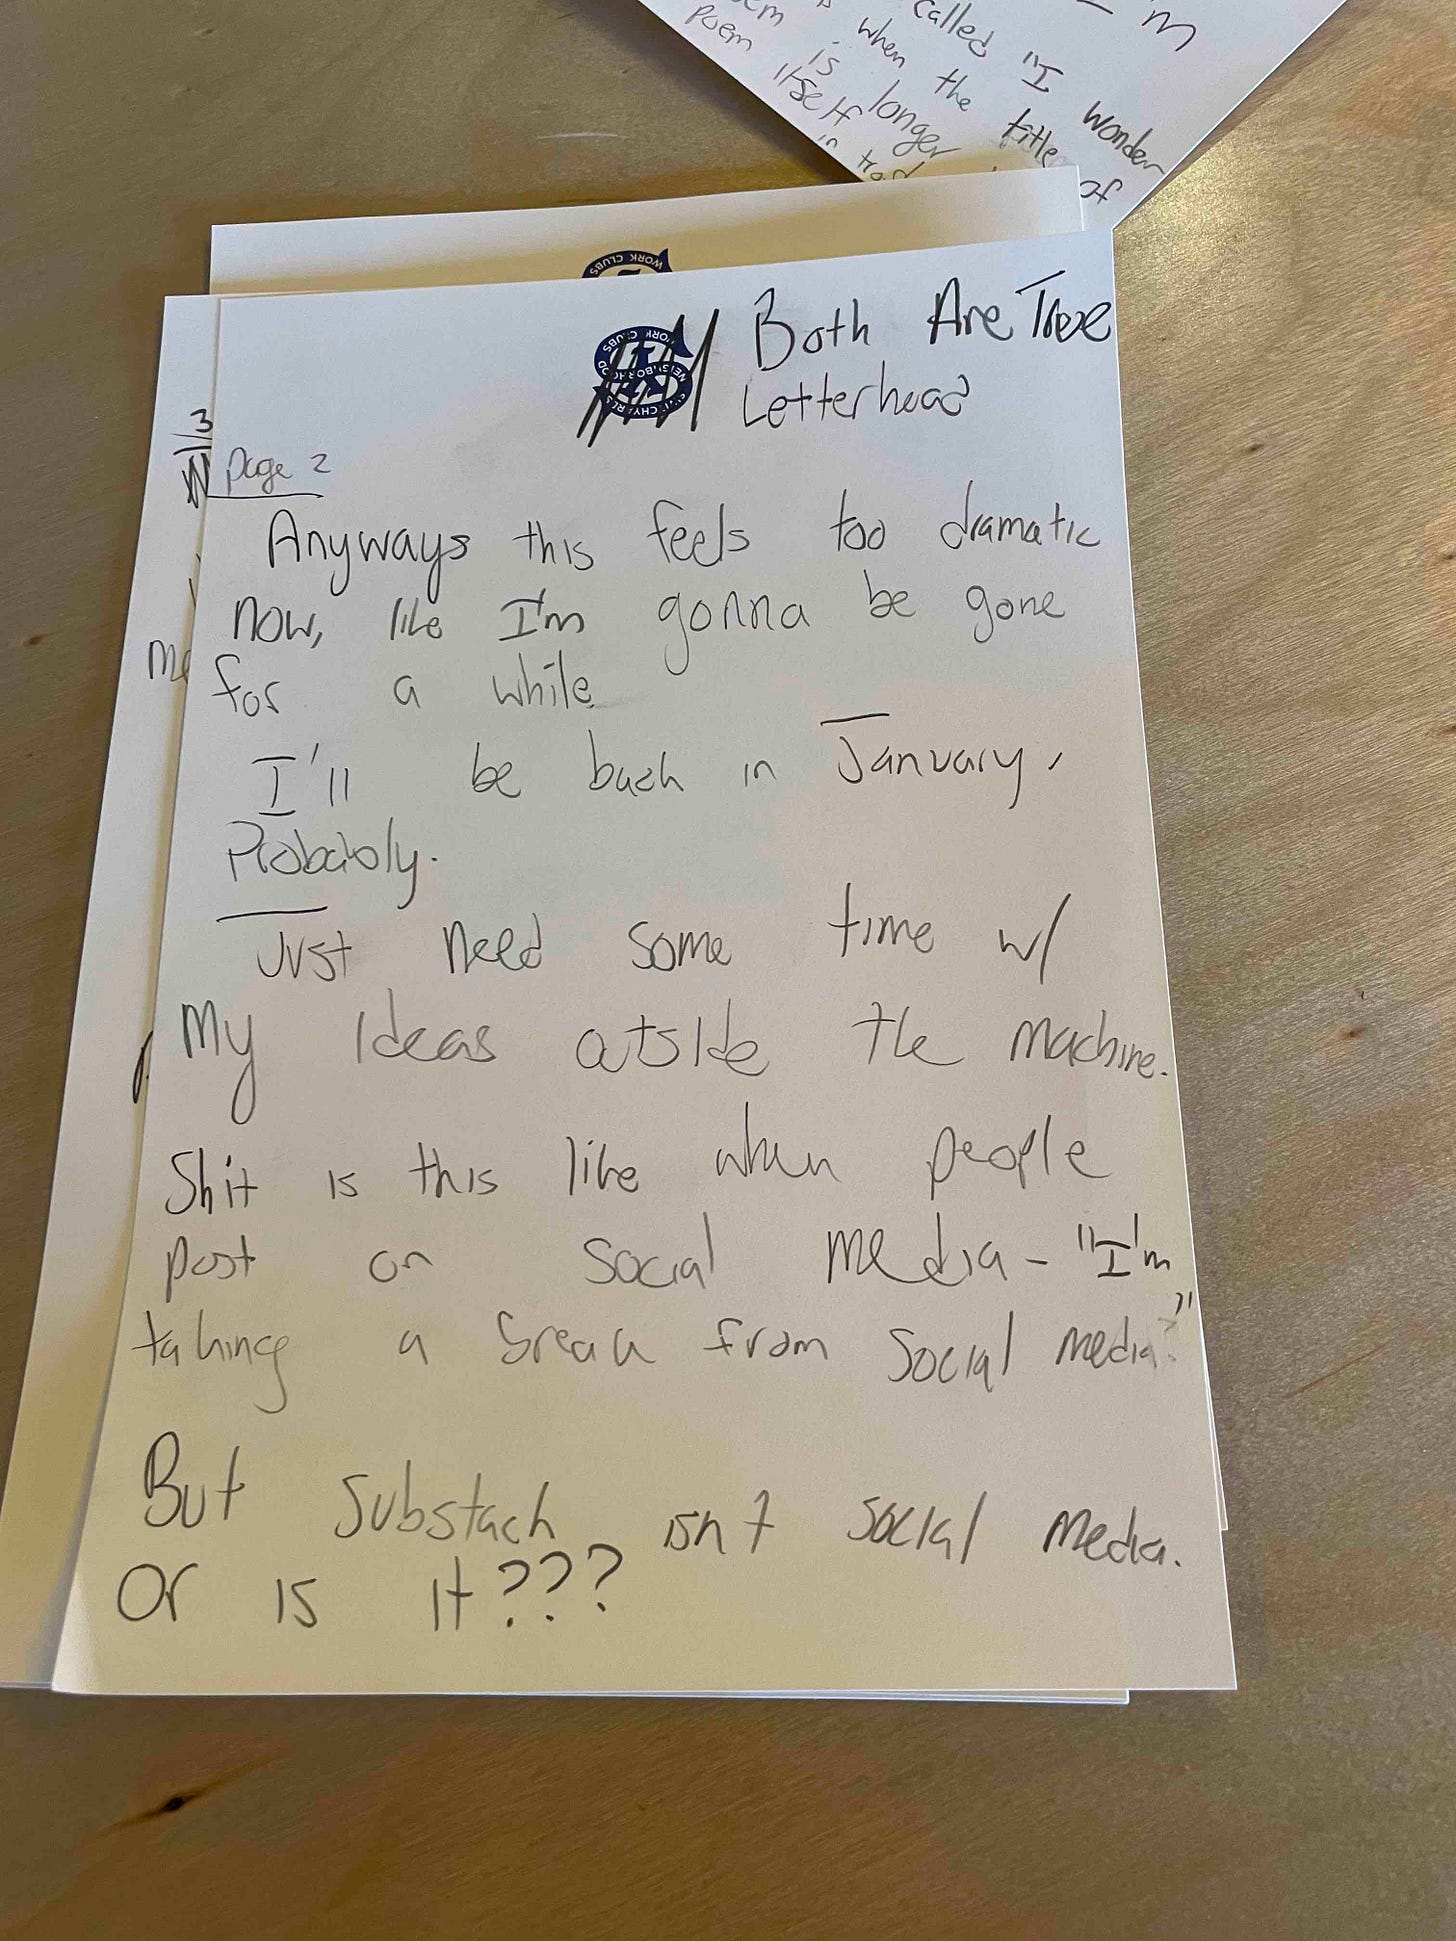 called "I wonder
when the title of
poem is longer
poem itself
WORK CLUBS
WORK CLUBS
NEIGHBORHOOD
SWITCHYARDS
Both Are True
Letterhead
3
page 2
Anyways this feels too dramatic
now, like I'm gonna be gone
for a while.
I'll be back in January,
Probably.
Just need some time w/
My Ideas outside the machine.
Shit is this like when people
post on social media - "I'm
taking a break from social media?"
But Substack isn't social media.
Or is it???